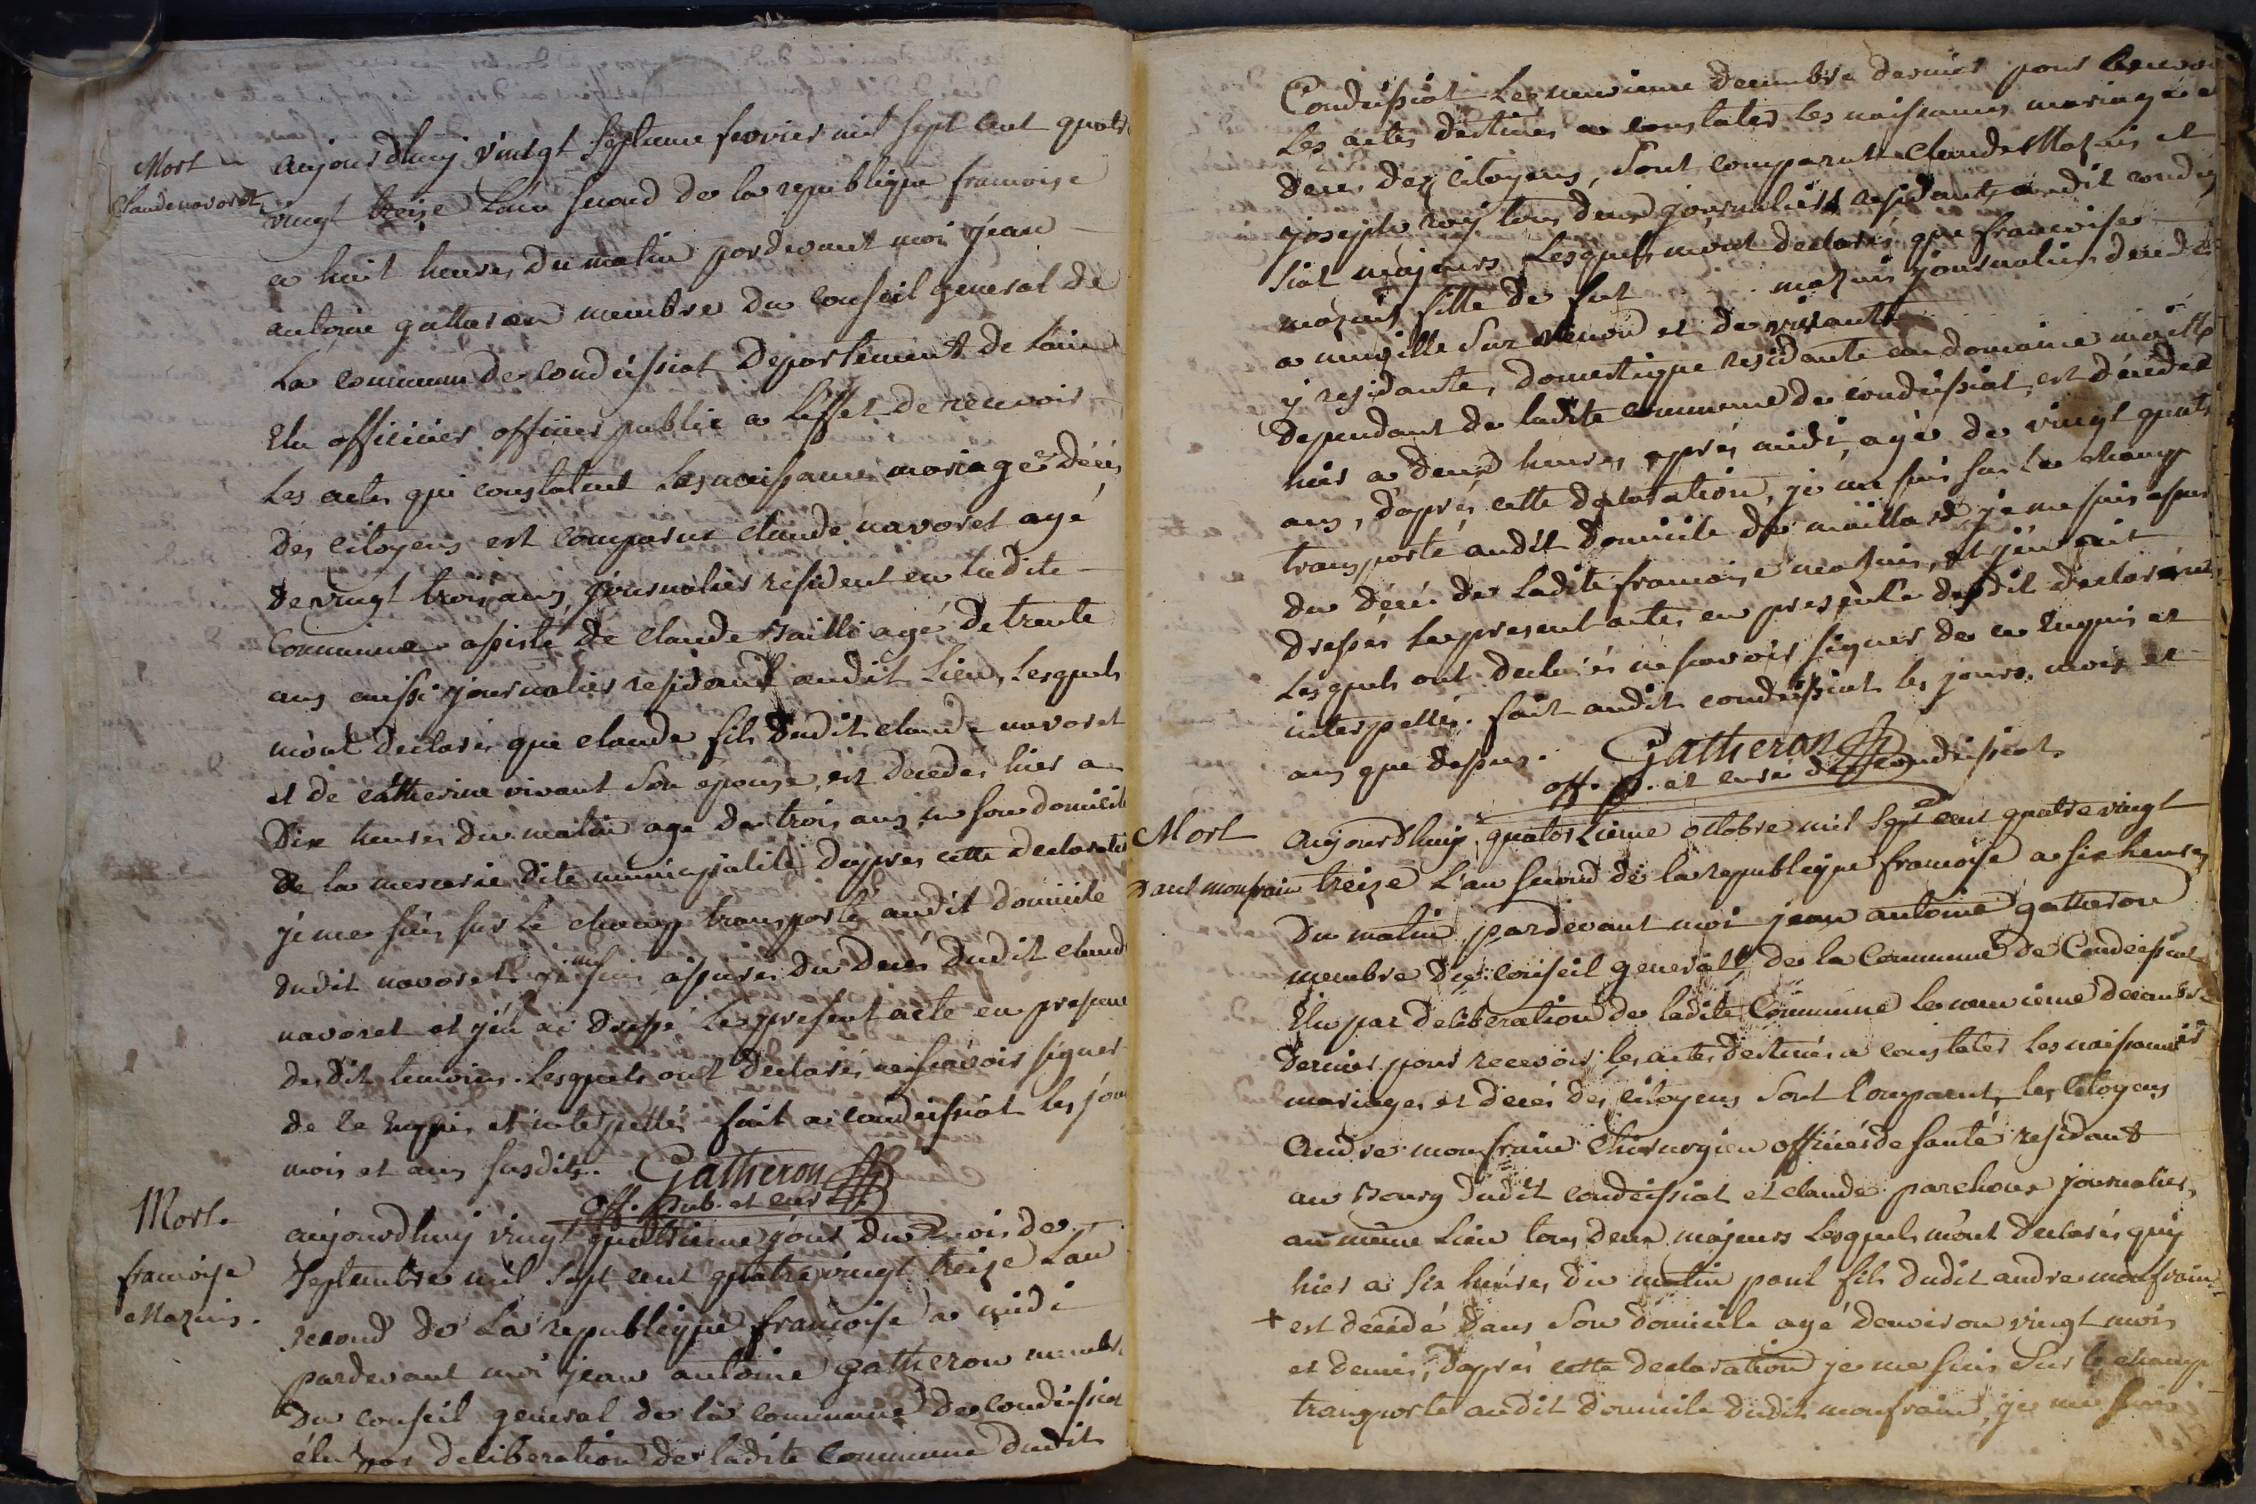 Mort
Claude navoret
aujourdhuy vingt septieme fevrier mil sept cent quatre
vingt treize L'an second de la republique francoise
a huit heures du matin pardevant moi jean
antoine gatheron membre du conseil general de
La commune de condeissiat Departement de L'ain
Elu officier public a L'effet de recevoir
Les actes qui constatent Les naissances mariages Décés
Des citoyens est comparu claude navoret agé
De vingt trois ans, journalier resident en ladite
Commune assisté De claude Bailli agé De trente
ans aussi journalier residant audit Lieu, Lesquels
m'ont declarés que claude fils dudit claude navoret
et de catherine vivant son epouse, est decedés hier a
Dix heures du matin age de trois ans en son domicile
De la dite municipalité D'apres cette declaration
je me suis sur Le champ transporté audit domicile
dudit navoret je me suis assurés du Décés Dudit claude
navoret et j'en ai Dressé Le present acte en presence
desdit temoins. Lesquels ont Declarés ne scavoir signer
de ce Enquis et interpellés fait a condeissiat les jour
mois et ans susdits. Gatheron
off. pub. et curé
Mort.
francoise
Mazuis.
aujourdhuy vingt quatrieme jour du mois de
septembre mil sept cent quatre vingt treize L'an
second de La republique francoise a midi
pardevant moi jean antoine gatheron membre
Du conseil general de la commune de condeissiat
élu par deliberation de ladite commune dudit
Condeissiat Le neuvieme decembre dernier pour Recevoir
Les actes destinés a constater Les naissances mariages et
Décés des citoyens, Sont comparut claude Mazuis et
joseph roy tous deux journaliers residants audit condeis
siat majeurs Lesquels m'ont declarés que francoise
mazuis fille de fut mazuis journalier decedé
a neuville sur renon et de vivante
y residante, Domestique residante au domaine maillo
Dependant de ladite commune de condeissiat, est décédée
hier a deux heures aprés midi, agé de vingt quatre
ans, d'aprés cette declaration, je me suis sur Le champ
transporté audit Domicile de maillard je me suis assuré
du décés de Ladite francoise mazuis, et j'en ait
dressés Le present actes en presence desdit declarants
Lesquels ont declarés ne scavoir signer de ce Enquis et
interpellés. fait audit condeissiat les jours, mois et
ans que dessus. Gatheron
off. p. et curé de condeissiat
Mort
Paul monfrain
Aujourdhuy quatorzieme octobre mil sept cent quatre vingt
treize L'an second de la republique francoise a six heures
Du matin pardevant moi jean antoine gatheron
membre du conseil general de la Commune de Condeissiat
Elu par deliberation de ladite Commune Le neuvieme decembre
Dernier pour recevoir les actes destinés a constater Les naissances
mariages et décés des citoyens Sont Comparut, les Citoyens
André monfrain Chirurgien officier de santé residant
au Bourg dudit condeissiat et claude parchoux journalier,
au même Lieu tous deux majeurs Lesquels m'ont declarés qu'y
hier a six heures du matin paul fils dudit andre monfrain
+ est décédé Dans Son domicile agé d'environ vingt mois
et demis, d'aprés cette declaration je me suis Sur le champ
transporté audit Domicile dudit monfrain, je me suis